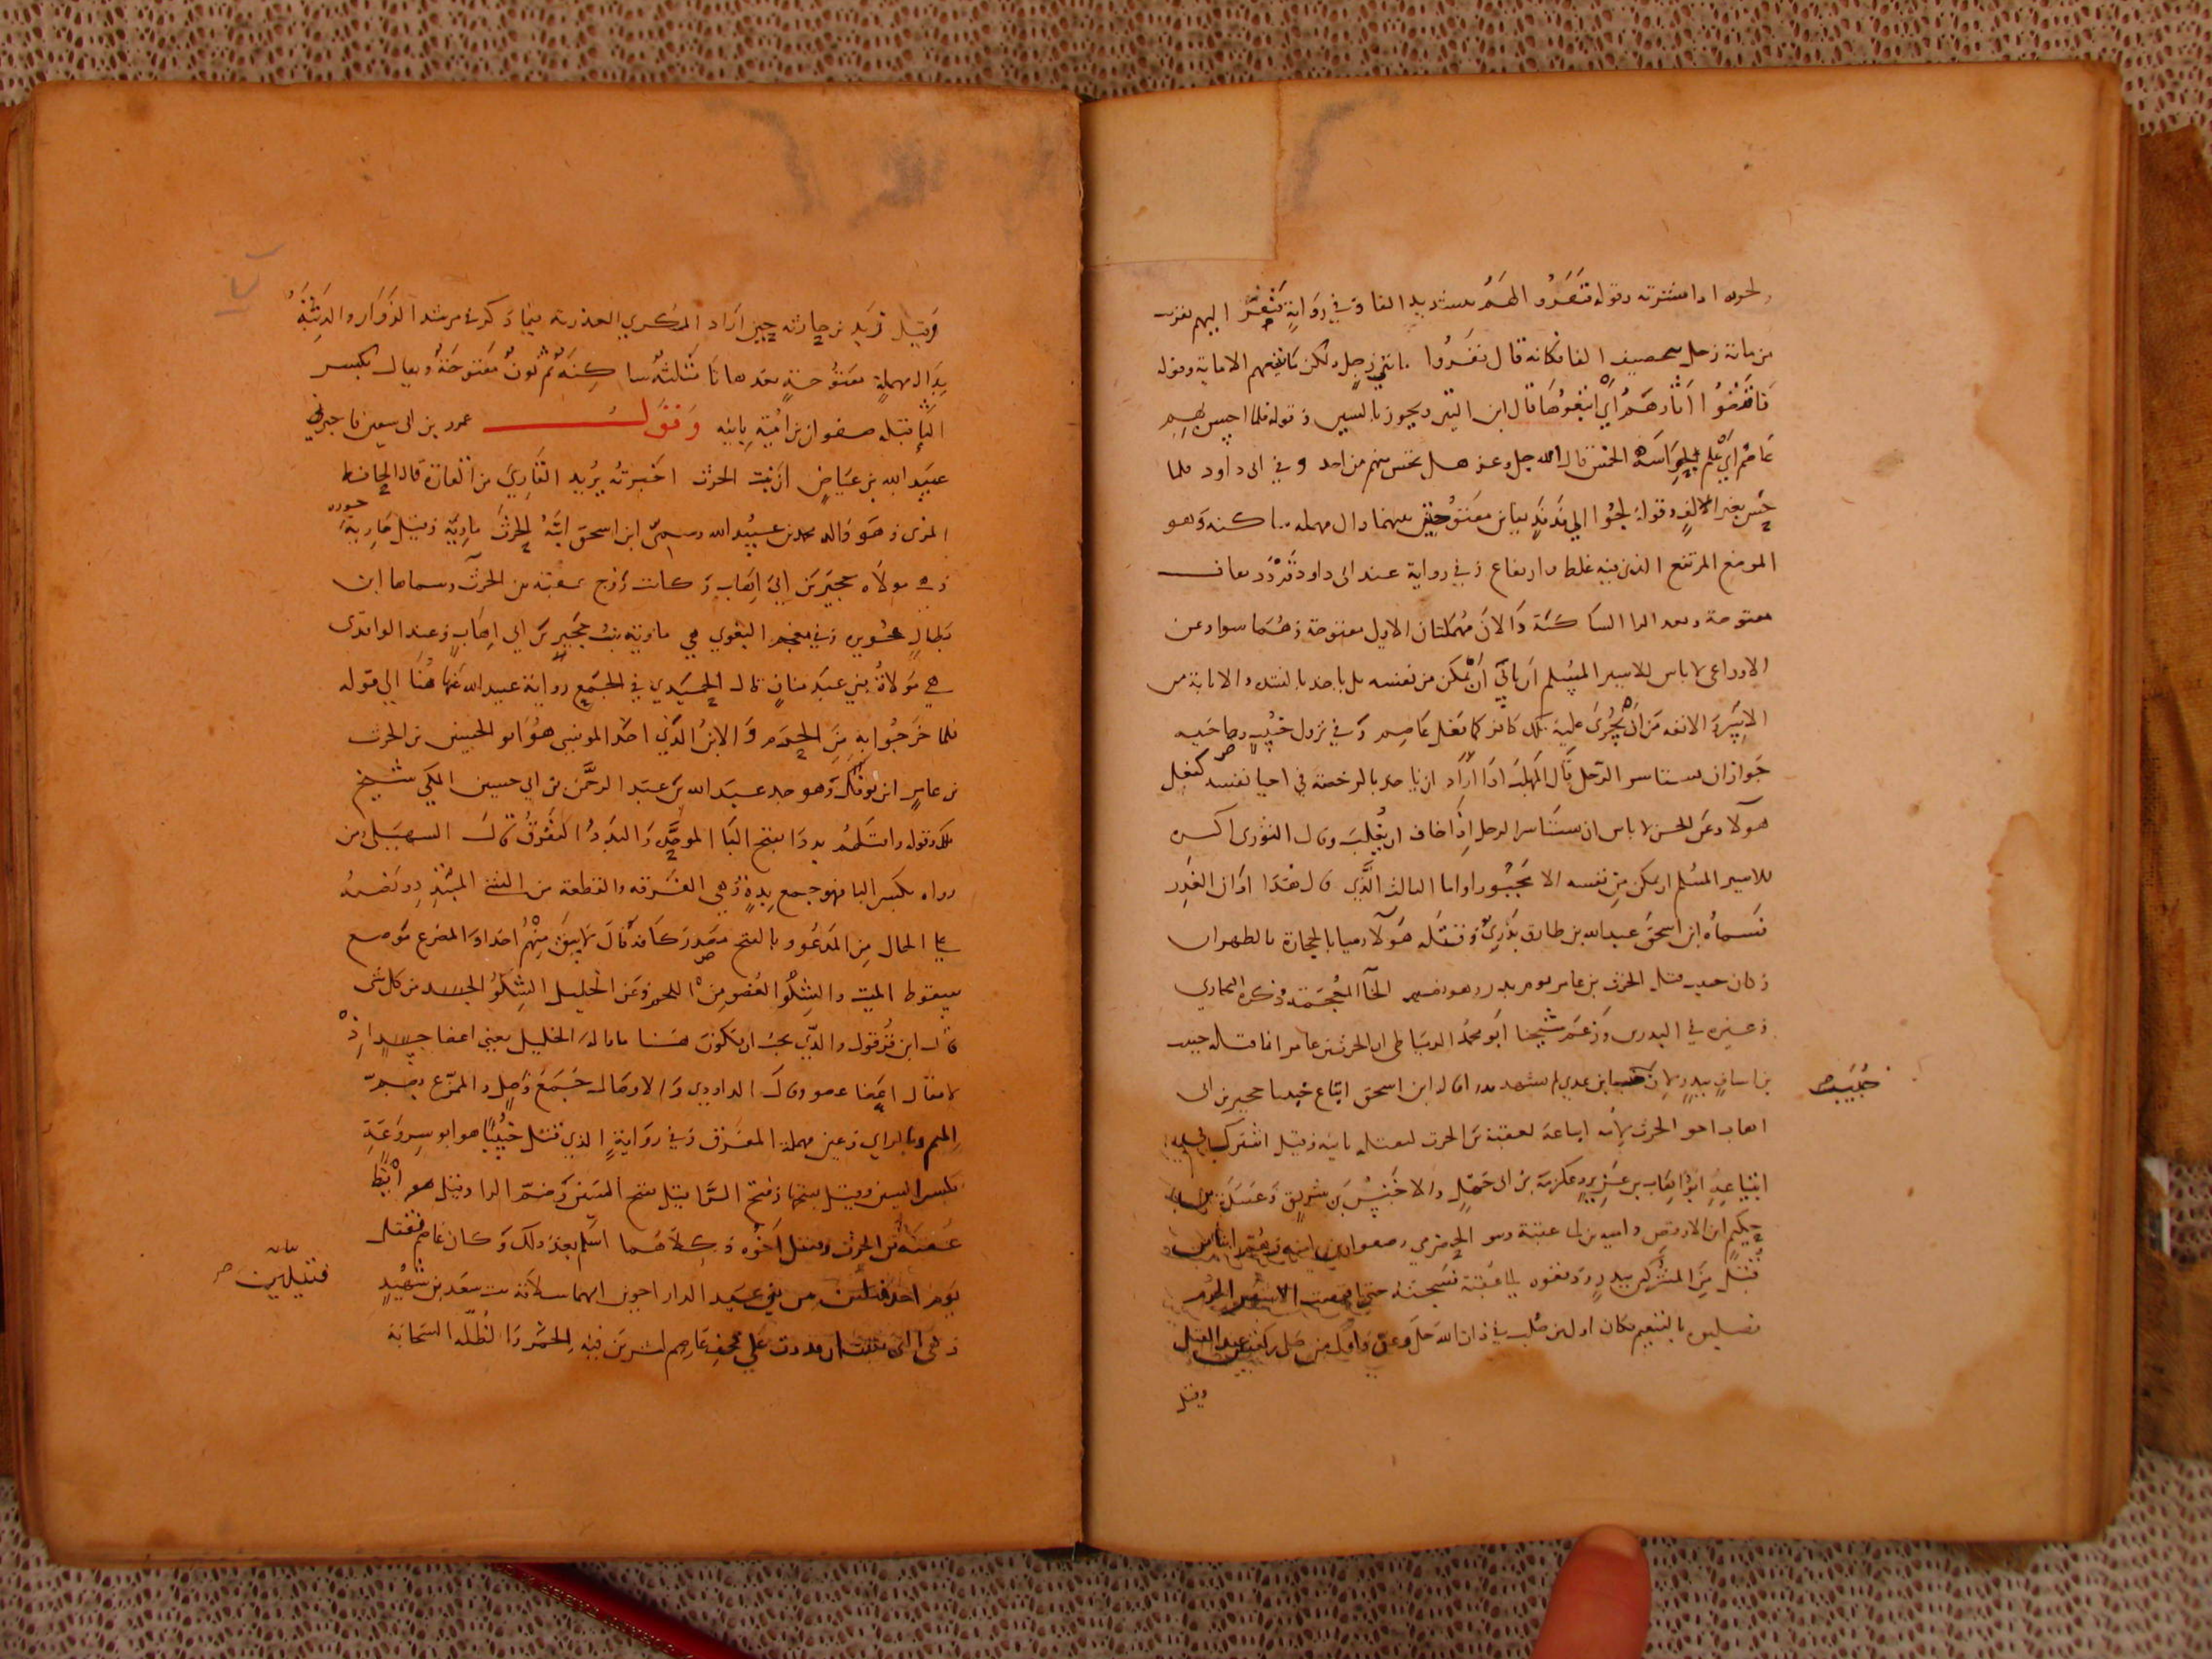 من مائة رجل تصحيف القا فكانه قال نفروا مائتي رجل ولكن ما تبعهم الا ماية وقوله
فاقتصوا اثارهم أي اتبعوها قال ابن التين ويجوز بالسين وقوله فلما احس بهم
عاصم أي علم قال الله جل وعز هل تحس منهم من احد وفي ابي داود فلما
حس بغير الالف وقوله لجوا الي فدفد بفاين مفتوحتين بينهما دال مهملة ساكنة وهو
الموضع المرتفع الذي فيه غلظ وارتفاع وفي رواية عند ابي داود قردد بقاف
مفتوحة وبعد الرا الساكنة دالان مهملتان الاولي مفتوحة وهما سوا وعن
الاوزاعي لا باس للاسير المسلم ان يابي ان يمكن من نفسه بل ياخذ بالشدة والاباية من
الاسر والانفه من ان يجري عليه ملك كافر كما فعل عاصم وفي نزول خبيب وصاحبيه
جواز ان يستاسر الرجل قال المهلب اذا اراد ان ياخذ بالرخصة في احيا نفسه كفعل
هولآ وعن الحسن لا باس ان يستاسر الرجل اذا خاف ان يغلب وقال الثوري اكره
للاسير المسلم ان يمكن من نفسه الا مجبورا واما الثالث الذي قال هذا اول الغدر
فسماه ابن اسحق عبد الله بن طارق بدري وقتله هولآ رميا بالحجارة بالظهران
وكان خبيب قتل الحرث بن عامر يوم بدر الخآ المعجمة ذكره البخاري
وغيره في البدريين وزعم شيخنا ابو محمد الدمياطي ان الحرث بن عامر انما قتله خبيب
بن اساف ببدر لان خبيبا بن عدي لم يشهد بدرا قال ابن اسحق ابتاع خبيبا حجير بن ابي
خبيب
اهاب اخو الحرث لأمه ابتاعه لعقبة بن الحرث ليقتله بابيه وقيل اشترك في
ابتياعه ابو اهاب بن عزيز وعكرمة بن ابي جهل والاخنس بن شريق وعبيدة بن
حكيم ابن الاوقص وامية بن ابي عتبة وبنو الحضرمي وصفوان بن امية وهم ابنا من
قتل من المشركين ببدر ودفعوه الي عقبة فسجنه حتي انقضت الاشهر الحرم
فصلبوه بالتنعيم فكان اول من صلب في ذات الله جل وعز واول من صلي ركعتين عند القتل
وقيل
وقيل زيد بن حارثة حين اراد المكري الغدر به فيما ذكر مرشد الفزار والدثنة
بدال مهملة مفتوحة بعدها ثا مثلثة ساكنة ثم نون مفتوحة ويقال بكسر
الثا قتله صفوان بن امية بابيه وقول عمرو بن ابي سفين فاخبرني
عبيد الله بن عياض ان بنت الحرث اخبرته يريد القاري من القارة قاله الحافظ
المزي وهو والد محمد بن عبيد الله وسمي ابن اسحق ابنة الحرث ماوية وقيل مارية
وهي مولاه حجير بن ابي اهاب وكانت زوج عقبة بن الحرث وسماها ابن
بطال جويرية وفي معجم البغوي هي ماوية بنت حجير بن ابي اهاب وعند الواقدي
هي مولاة بني عبد مناف قال الحميدي في الجمع رواية عبيد الله عنها هنا الي قوله
فلما خرجوا به من الحرم والابن الذي اخذ الموسي هو ابو الحسين بن الحرث
بن عامر ابن نوفل وهو جد عبد الله بن عبد الرحمن بن ابي حسين المكي شيخ
ملك وقوله واقتلهم بددا بفتح البا الموحدة والبدد التفرق قال السهيلي من
رواه بكسر البا فهو جمع بدة وهي الفرقة والقطعة من الشي المتبدد ونصبه
علي الحال من المدعو وبالفتح مصدر كانه قال لا تبق منهم احدا والمصرع موضع
سقوط الميت والشلو العضو من اللحم وعن الخليل الشلو الجسد من كل شي
قال ابن قرقول والذي يجب ان يكون هنا ما قاله الخليل يعني اعضا جسد اذ
لا يقال اعضا عضو وقال الداودي والاوصال جمع وصل والممزع بضم
الميم وبالزاي وعين مهملة المفرق وفي رواية الذي قتل خبيبا هو ابو سروعة
بكسر السين وقيل بفتحها وفتح الرا قيل بفتح السين وضم الرا وقيل هو ايضا
عقبة بن الحرث وقيل اخوه وكلاهما اسلم بعد ذلك وكان عاصم قتل
يوم احد قتيلين من بني عبد الدار اخوين امهما سلافة بنت سعد بن شهيد
قتيلين
وهي التي نذرت ان قدرت علي قحف عاصم لتشربن فيه الخمر والظلة السحابة